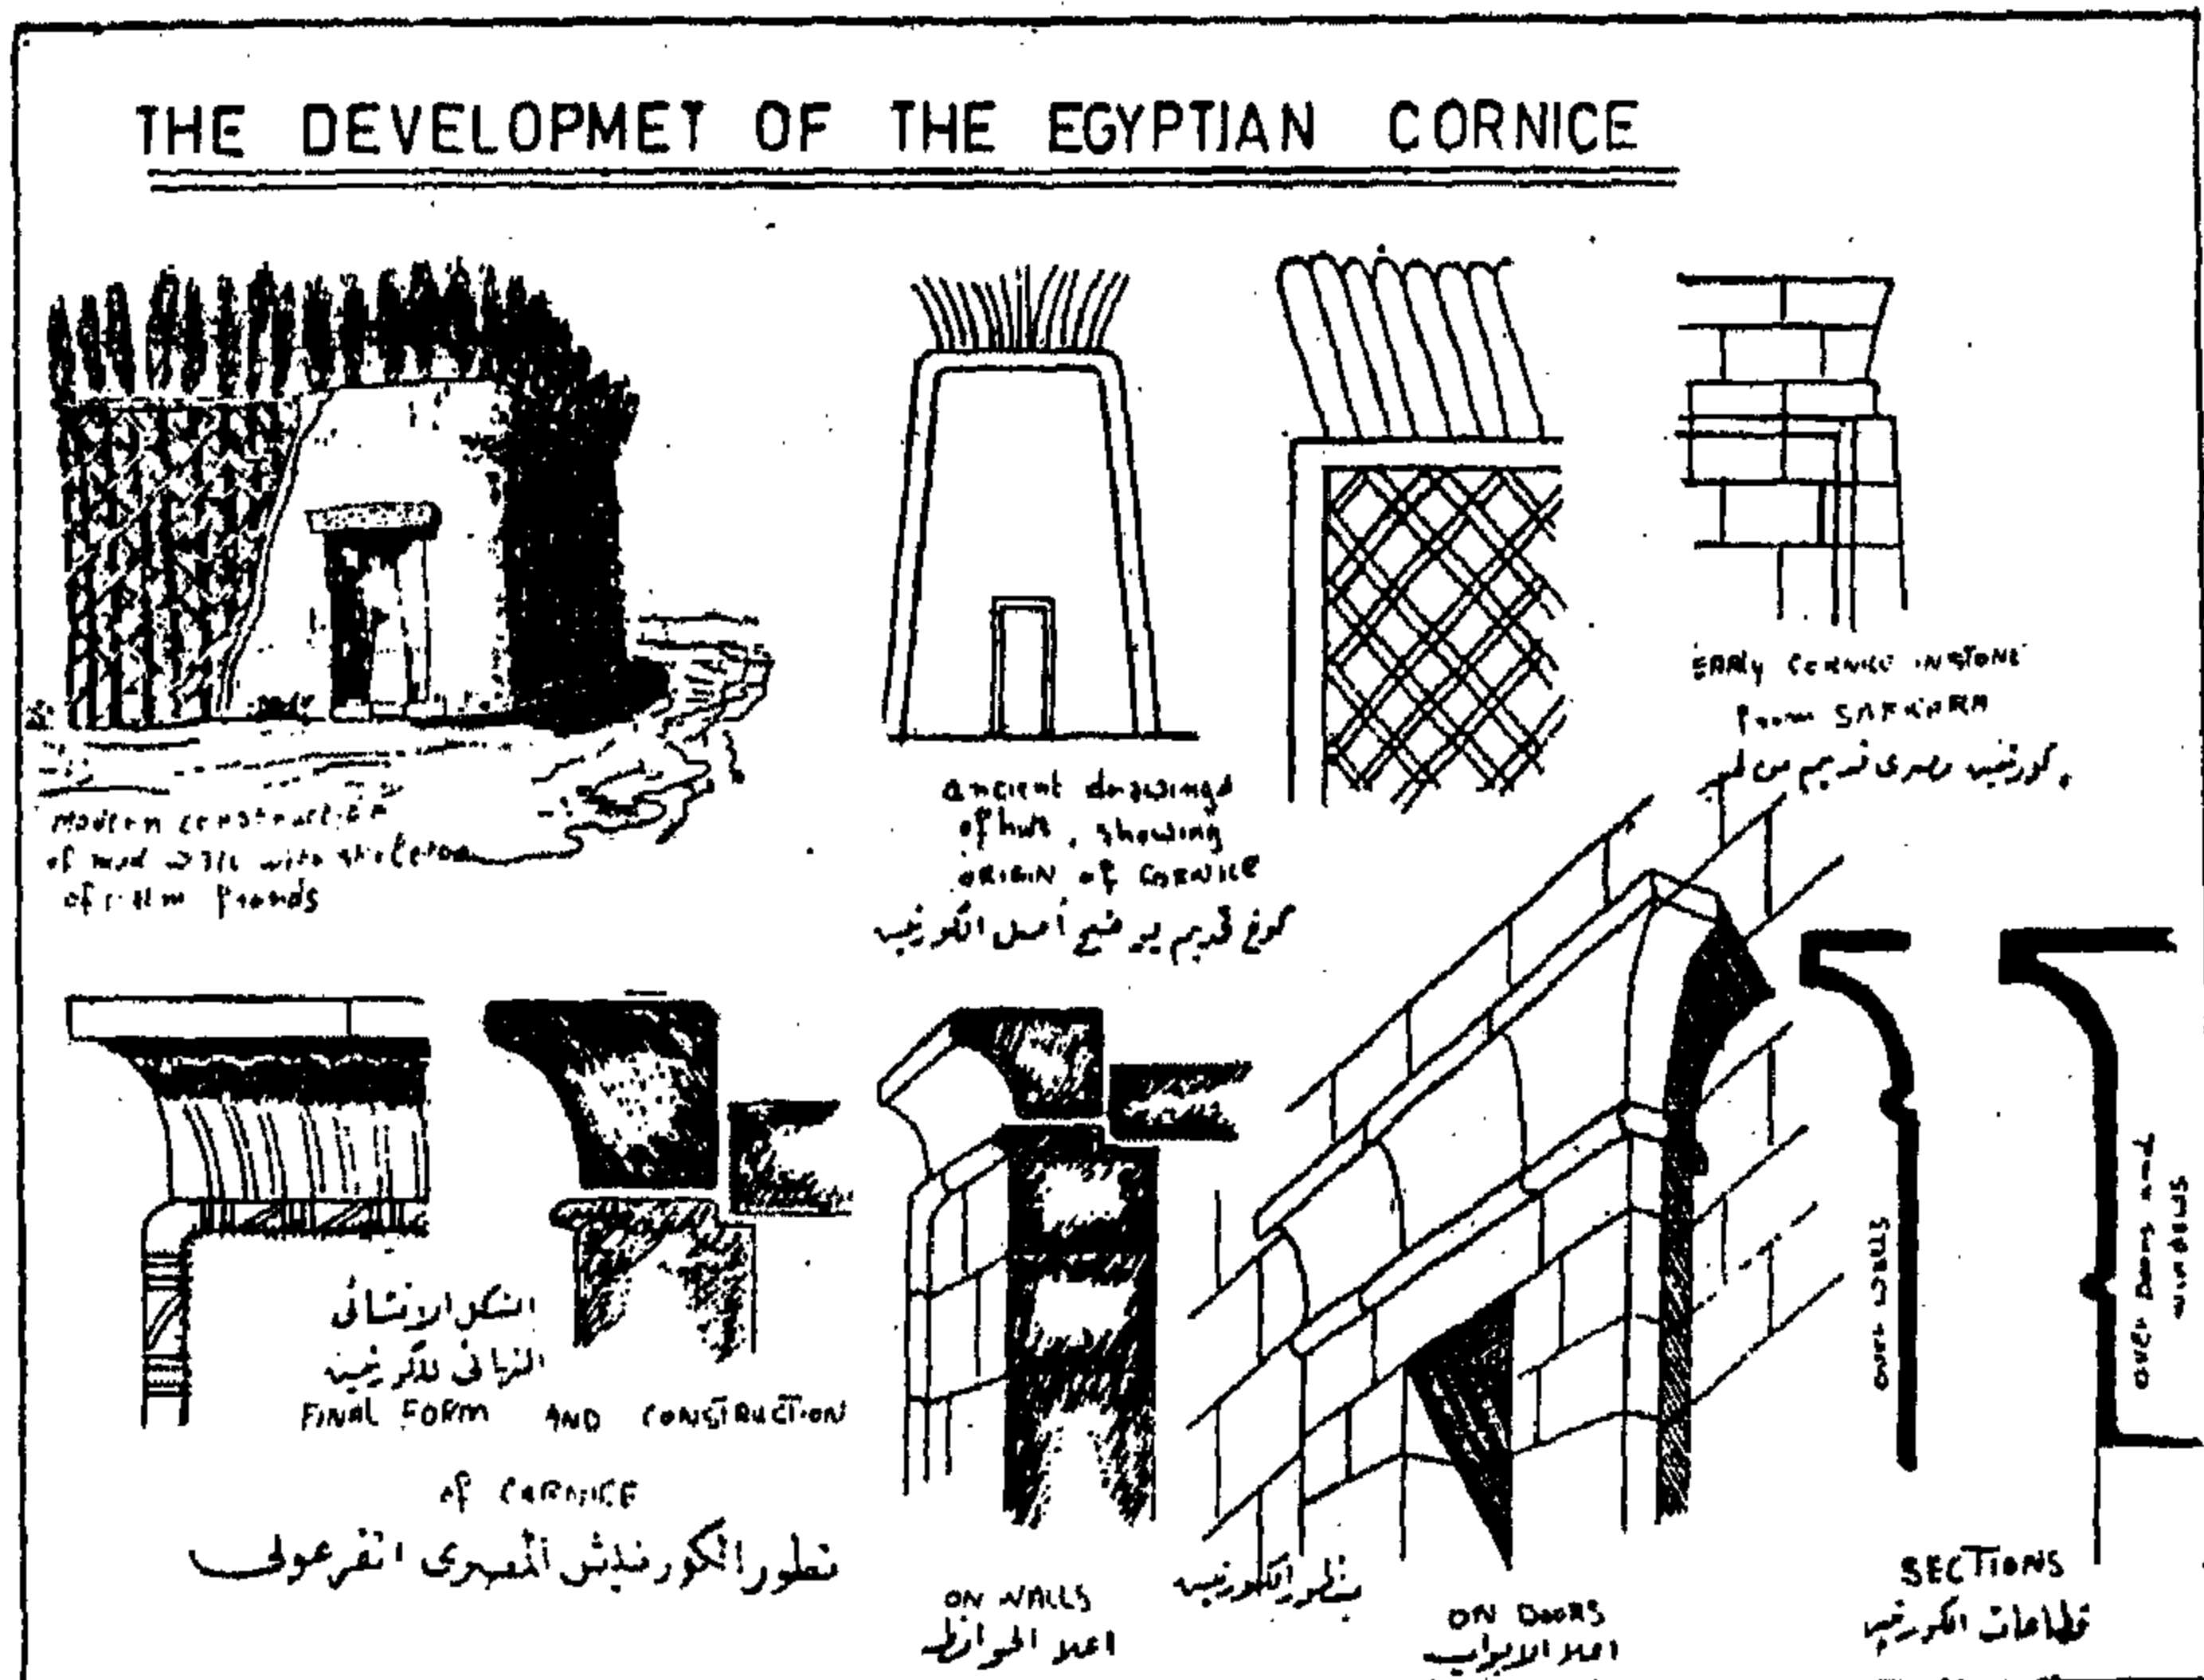 THE DEVELOPMET OF THE EGYPTIAN CORNICE
modern construction
of mud wall with skeleton
of palm fronds
ancient drawings
of huts, showing
ORIGIN of CORNICE
كوخ قديم يوضح أصل الكورنيه
EARLY CORNICE IN STONE
from SAKKARA
كورنيه مصرى قديم من
الشكل الانشائى
النهائى للكورنيه
FINAL FORM AND CONSTRUCTION
of CORNICE
تطور الكورنيش المصرى الفرعونى
ON WALLS
اعلا الحوائط
منظور الكورنيه
ON DOORS
اعلا الابواب
OVER WALLS
OVER DOORS and
WINDOWS
SECTIONS
قطاعات الكورنيه